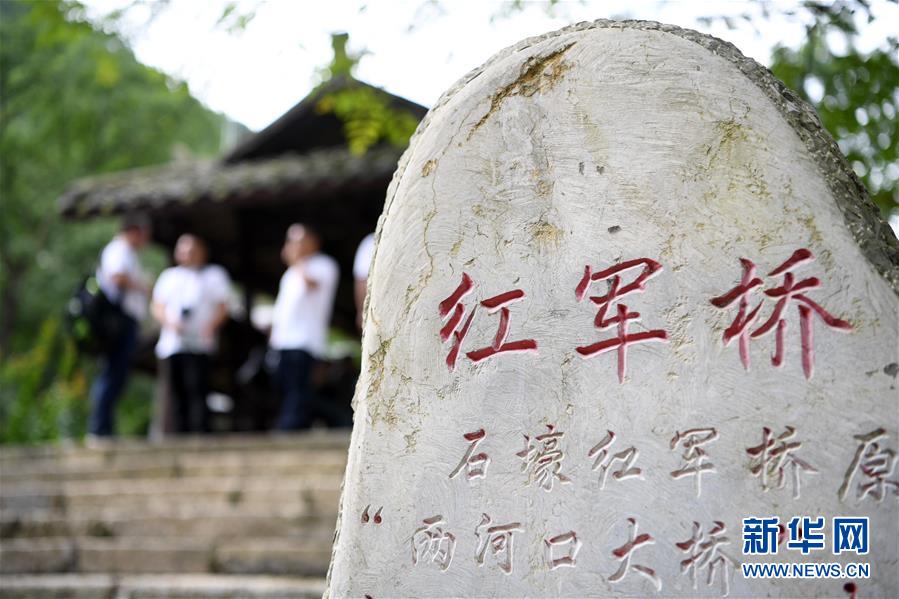 红军桥
石壕红军桥原
“两河口大桥”
新华网
WWW.NEWS.CN